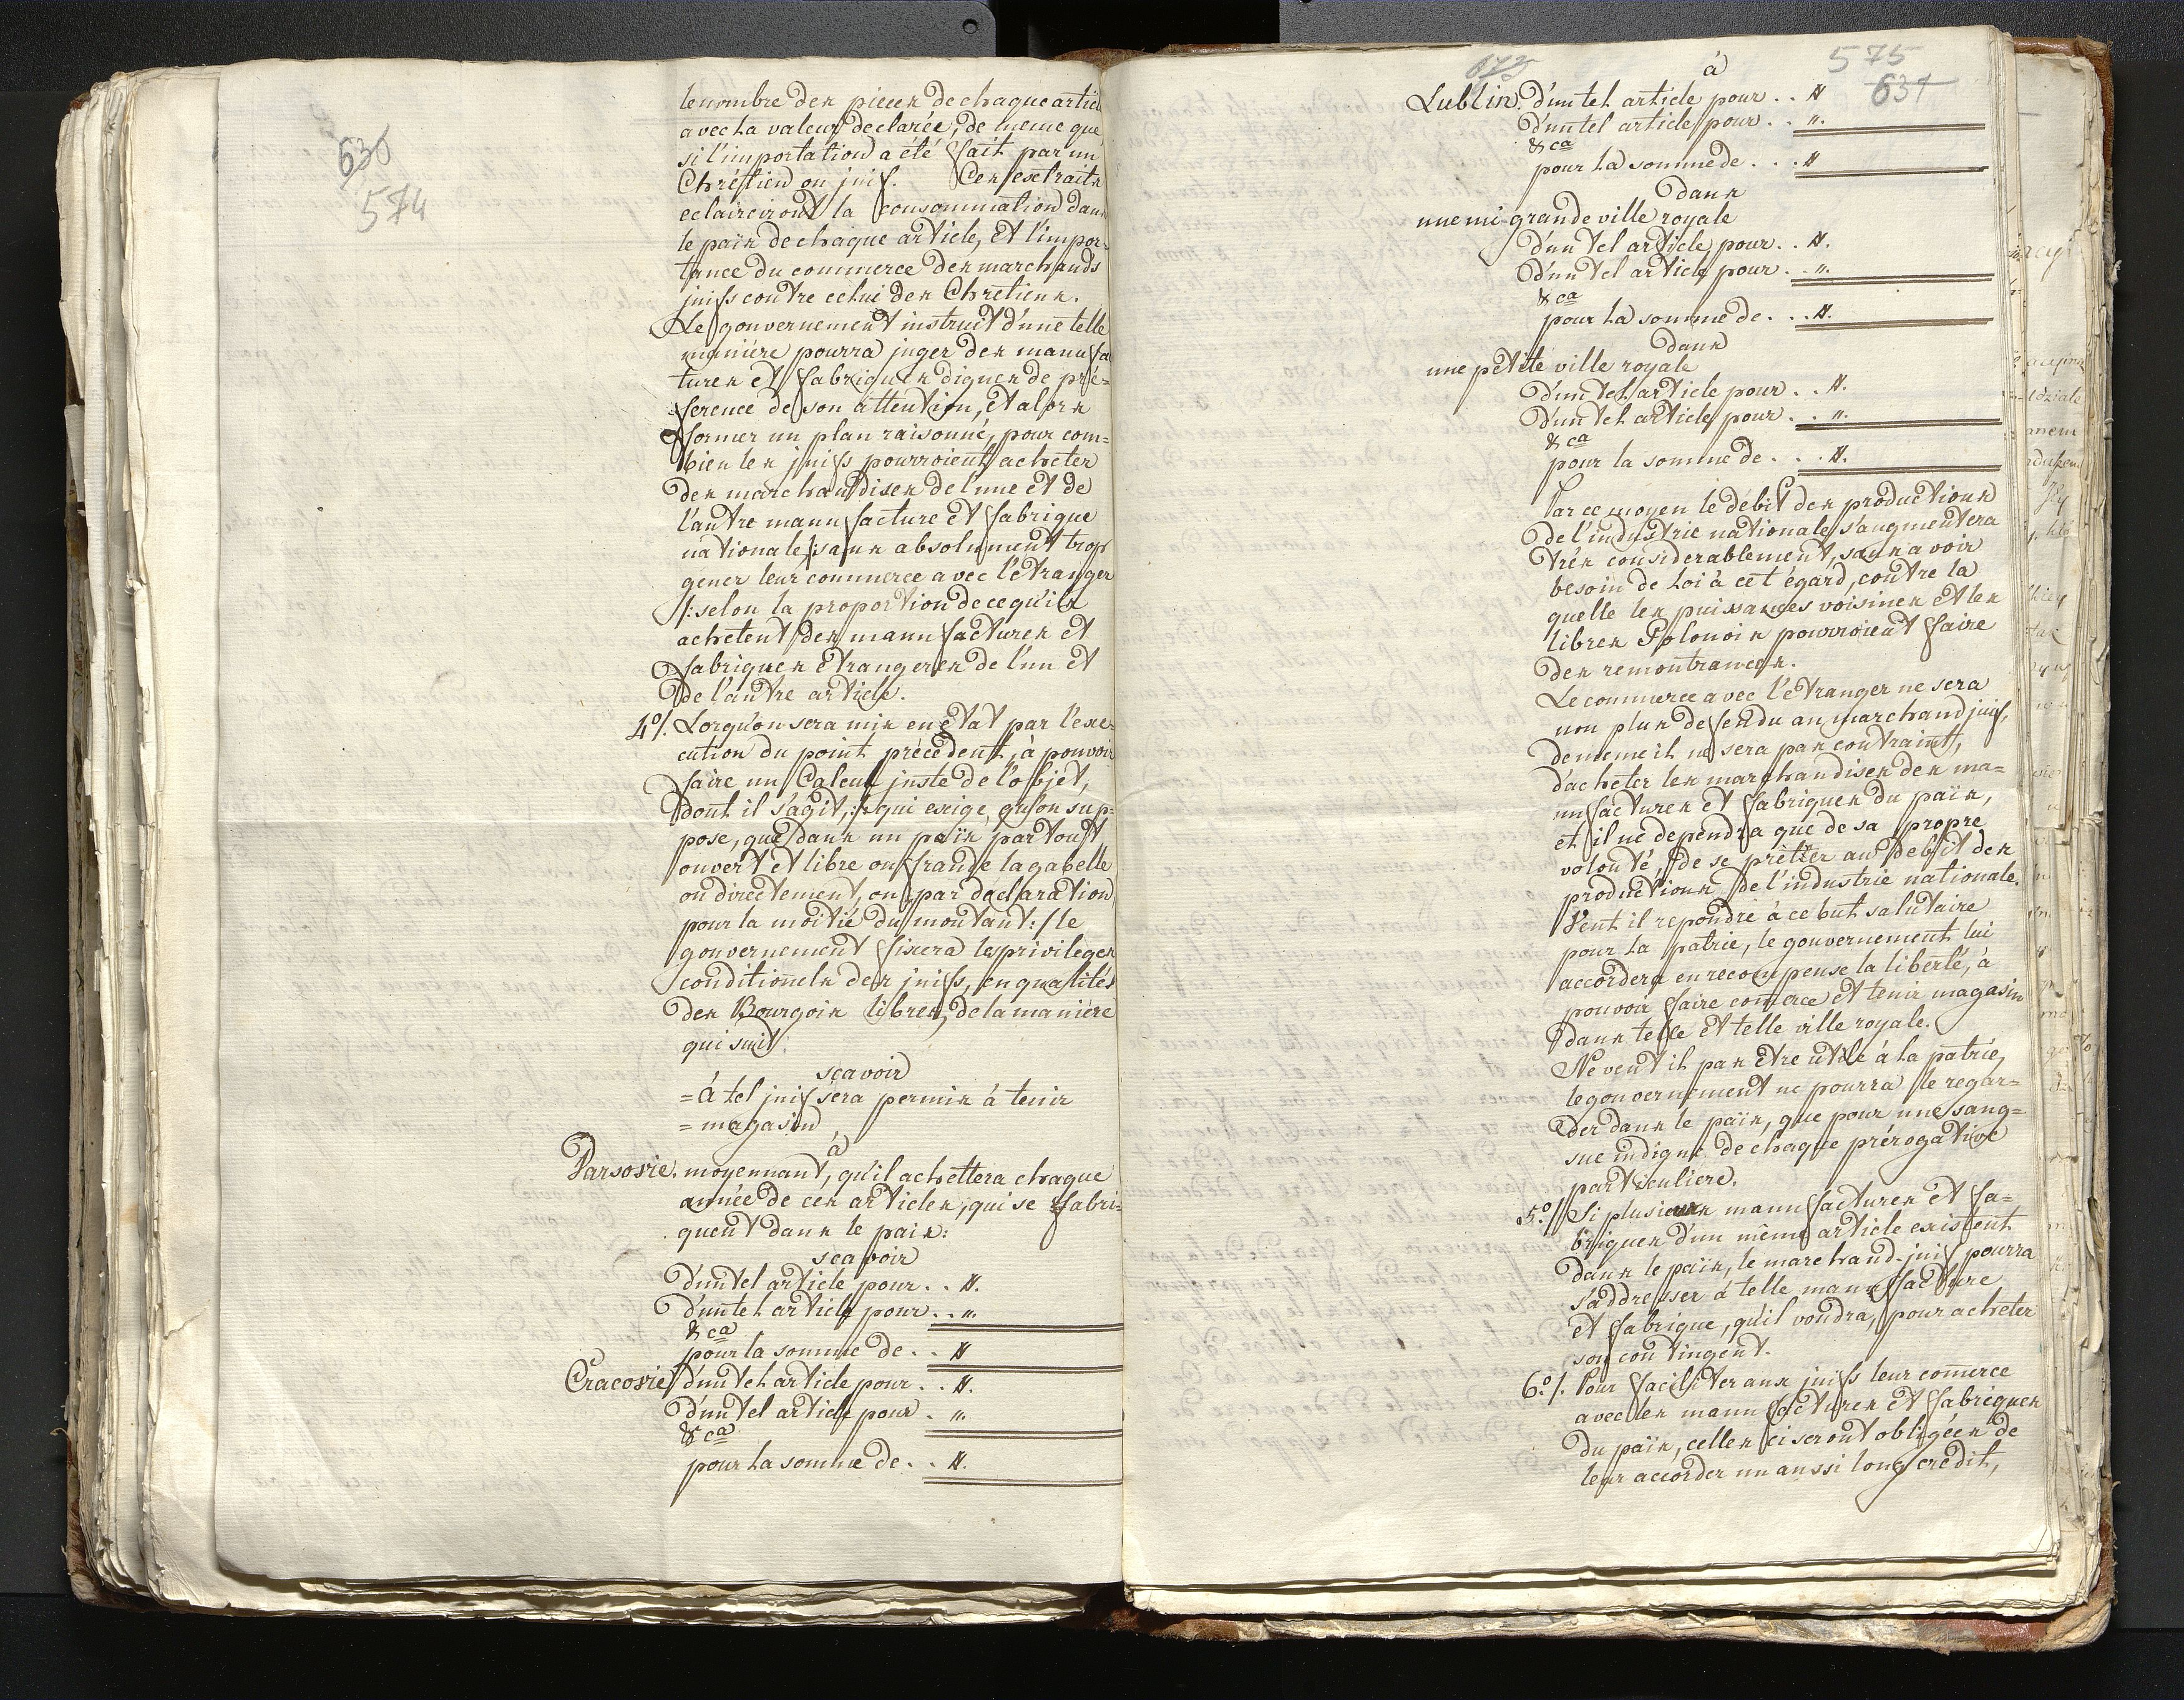 630
574
le nombre des pieces de chaque articl
avec la valeur declarée, de meme que
si l'importation a été fait par un
Chrétien ou juif. Ces extraits
eclairciront la consommation dans
le païs de chaque article, et l'impor-
tance du commerce des marchands
juifs contre celui des Chrétiens.
Le gouvernement instruit d'une telle
maniére pourra juger des manufa
tures et fabriques dignes de pré=
ference de son attention, et alors
former un plan raisonné, pour com=
bien les juifs pourroient acheter
des marchandises de l'une et de
l'autre manufacture et fabrique
nationale, sans absolument trop
gener leur commerce avec l'etranger
/: selon la proportion de ce qu'ils
achetent des manufactures et
fabriques etrangeres de l'un et
de l'autre article.
4°/. Lorsqu'on sera mis en etat par l'exe=
cution du point précedent, à pouvoir
faire un Calcul juste de l'objet,
dont il s'agit, :/: qui exige, qu'on sup=
pose, que dans un païs par tout
ouvert et libre on fraude la gabelle
ou directement, ou par declaration
pour la moitié du montant: / le
gouvernement fixera les privileges
conditionels des juifs, en qualités
des Bourgois libres, de la maniére
qui suit:
scavoir
= à tel juif sera permis à tenir
= magasin
à
Varsovie. moyennant, qu'il achettera chaque
année de ces articles, qui se fabri=
quent dans le païs:
scavoir
d'un tel article pour . . #.
d'un tel article pour . . ".
& ca
pour la somme de . . #
Cracovie d'un tel article pour . . #.
d'un tel article pour . ".
& ca
pour la somme de . . #.
673
575
631
à
Lublin. d'un tel article pour . . #
d'un tel article pour . . ".
& ca
pour la somme de . . . #
dans
une mi-grande ville royale
d'un tel article pour . . #.
d'un tel article pour . . ".
& ca
pour la somme de . . . #.
dans
une petite ville royale
d'un tel article pour . . #.
d'un tel article pour . . ".
& ca
pour la somme de . . . #.
Par ce moyen le debit des productions
de l'industrie nationale s'augmentera
trés considerablement, sans avoir
besoin de Loi à cet égard, contre la
quelle les puissances voisines et les
libres Polonois pourroient faire
des remontrances.
Le commerce avec l'etranger ne sera
non plus defendu au marchand juif,
de meme il ne sera pas contraint,
d'acheter les marchandises des ma=
nufactures et fabriques du païs,
et il ne dependra que de sa propre
volonté, de se prêtter au debit des
productions de l'industrie nationale.
Veut il repondre à ce but salutaire
pour la patrie, le gouvernement lui
accordera en recompense la liberté, à
pouvoir faire comerce et tenir magasin
dans telle et telle ville royale.
Ne veut il pas être utile à la patrie,
le gouvernement ne pourra le regar=
der dans le païs, que pour une sang=
sue indigne de chaque prérogative
particuliere.
5°./ Si plusieurs manufactures et fa=
briques d'un même article existent
dans le païs, le marchand-juif pourra
s'addresser à telle manufacture
et fabrique, qu'il voudra, pour acheter
son contingent.
6°./. Pour faciliter aux juifs leur comerce
avec les manufactures et fabriques
du païs, celles ci seront obligées de
leur accorder un aussi long credit,